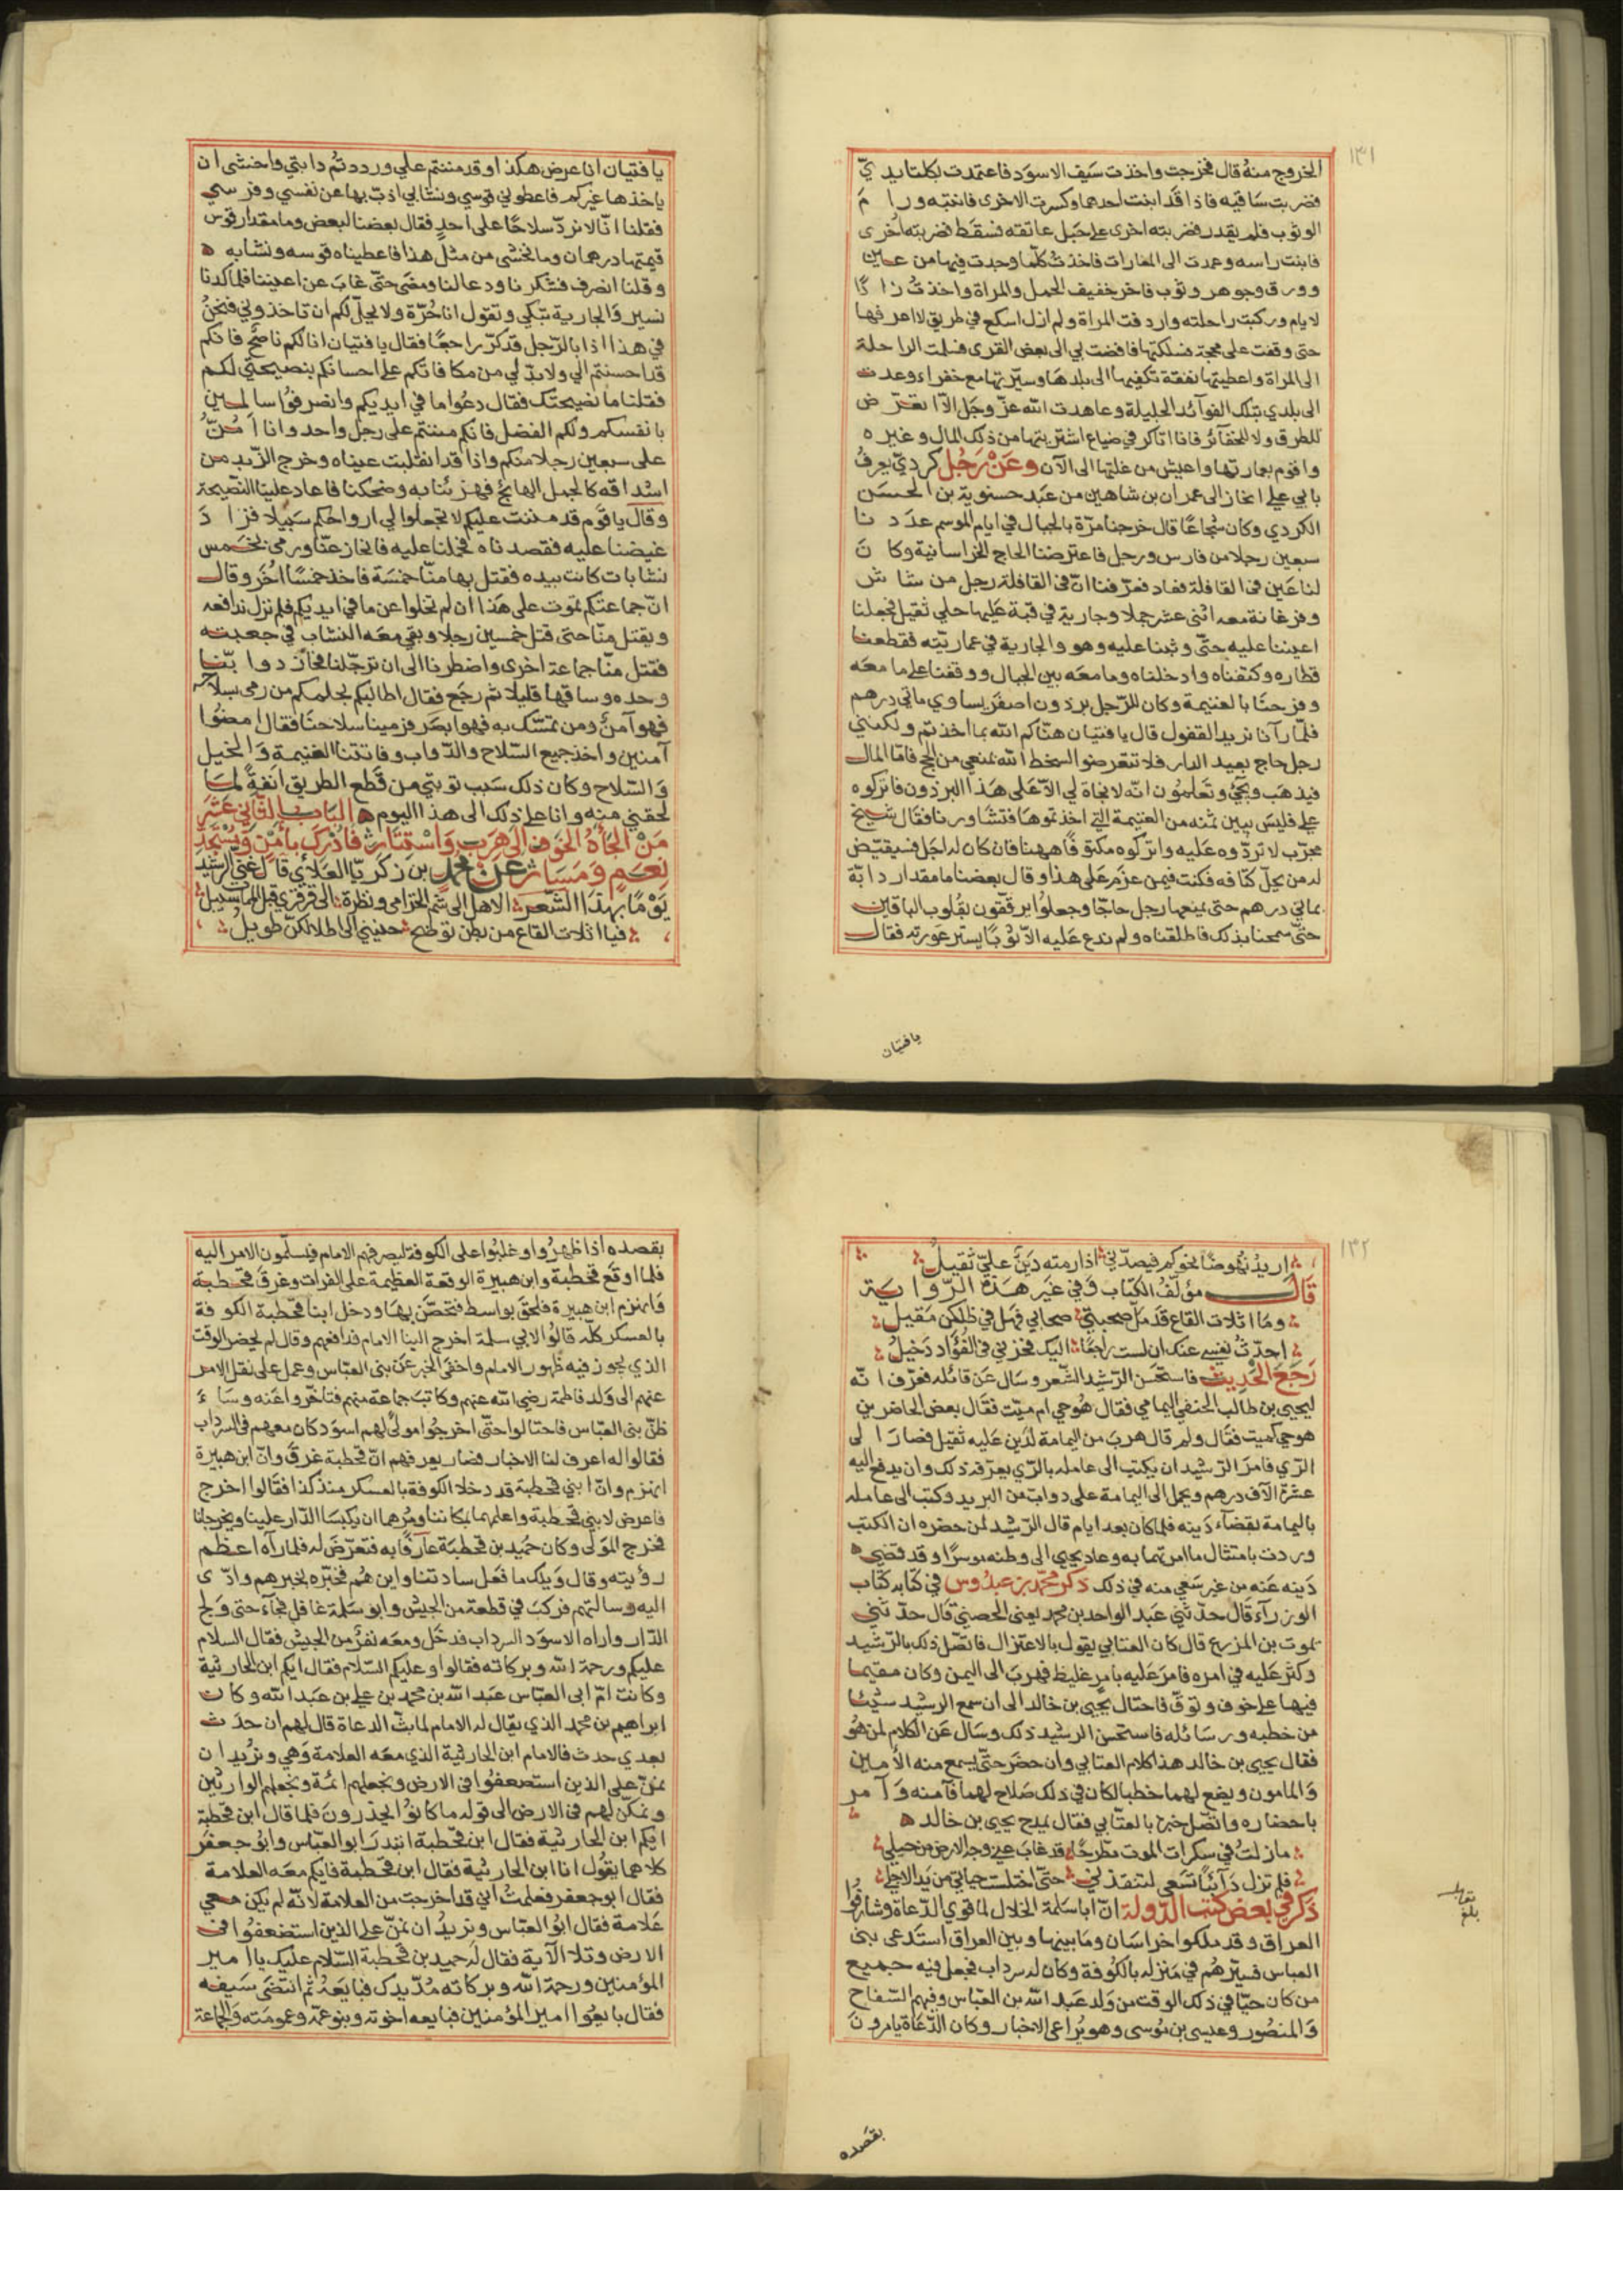 ١٣١
الخروج منه قال فخرجت واخذت سيف الاسود فاعتمدت بكلتا يديّ
فضربت ساقيه فاذا قد ابنت احدهما وكسرت الاخرى فانتبه ورام
الوثوب فلم يقدر فضربته اخرى على حبل عاتقه فسقط فضربته اخرى
فابنت راسه وعمدت الى المغارات فاخذت كلّما وجدت فيها من عين
وورق وجوهر وثوب فاخر خفيف الحمل والمراة واخذت زادًا
لايام وركبت راحلته واردفت المراة ولم ازل اسكع في طريق لا اعرفها
حتى وقفت على محجة فسلكتها فافضت بي الى بعض القرى فسلمت الراحلة
الى المراة واعطيتها نفقة تكفيها الى بلدها وسيّرتها مع خفراء وعدت
الى بلدي بتلك الفوآئد الجليلة وعاهدت الله عزّ وجل الّا اتعرّض
للطرق ولا للخفآئر فانا اتاكر في ضياع اشتريتها من ذلك المال وغيره
واقوم بعمارتها واعيش من غلتها الى الآن وعَنْ رَجُلٍ كرديّ يعرفُ
بابي علي انحاز الى عمران بن شاهين من عبد حسنوية بن الحسَن
الكردي وكان شجاعًا قال خرجنا مرّة بالجبال في ايام الموسم عددنا
سبعين رجلا من فارس ورجل فاعترضنا الحاج الخراسانية وكانَ
لنا عَين في القافلة فعاد فعرّفنا انّ في القافلة رجل من شاش
وفرغانة معه اثنى عشر حملا وجارية في قبة عليها حلي ثقيل فجعلنا
اعيننا عليه حتّى وثبنا عليه وهو والجارية في عماريّته فقطعنا
قطاره وكتفناه وادخلناه وما معَه بين الجبال ووقفنا على ما معَه
وفرحنَا بالغنيمة وكان للرّجل برذون اصفر يساوي مائتي درهم
فلمّا رآنا نريد القفول قال يا فتيان هنّاكم الله بما اخذتم ولكنني
رجل حاج بعيد الدار فلا تتعرضوا لسخط الله بمنعي من الحج فامّا المال
فيذهَب ويجي وتعلمون انّه لا نجاة لي الّا على هَذا البرذون فاتركوه
علي فليسَ يبين ثمنه من الغنيمة التي اخذتموهَا فتشاورنا فقال شيخ
مجرّب لا تردّوه عَليه واتركوه مكتوفًا ههنا فان كان لَه اجَل فسيقيّض
له من يحلّ كتافه فكنت فيمن عزم على هذا وقال بعضنا ما مقدار دابّة
بمائتي درهم حتى نمنعها رجل حاجّا وجعلوا يرقّقون بقلوب الباقين
حتّى سمحنا بذلك فاطلقناه ولم ندع عَليه الّا ثوبًا يستر عَورته فقال
يا فتيان
يا فتيان انا عرض هكذا وقد مننتم علي ورددتم دابتي واخشى ان
ياخذها غيركم فاعطوني قوسي ونشابي اذبّ بها عن نفسي وفرسي
فقلنا انّا لا نردّ سلاحًا على احدٍ فقال بعضنا لبعض وما مقدار قوس
قيمتها درهمان وما نخشى من مثل هذا فاعطيناه قوسه ونشابه ه
وقلنا انصرف فشكرنا ودعا لنا ومضَى حتّى غابَ عن اعيننا فلما كدنا
نسير وَالجارية تبكي وتقول انا حُرّة ولا يحلّ لكم ان تاخذوني فنحنُ
في هذا اذا بالرّجل قد كرّ راجعًا فقال يا فتيان انا لكم ناصحٌ فانكم
قد احسنتم الي ولا بدّ لي من مكافاتكم على احسانكم بنصيحتي لكم
فقلنا ما نصيحتك فقال دعُوا ما في ايديكم وانصرفوا سالمين
بانفسكم ولكم الفضل فانكم مننتم على رجل واحد وانا اَمُنُّ
على سبعين رجلا منكم واذا قد انقلبت عيناه وخرج الزّبد من
اشداقه كالجمل الهائج فهزئنا به وضحكنا فاعاد علينا النّصيحة
وقال يا قوم قد مننت عليكم لا تجعلوا لي ارواحكم سَبيلا فزادَ
غيضنا عليه فقصدناه فحملنا عليه فانحاز عنّا ورمى بخمس
نشابات كانت بيده فقتل بها منّا خمسَة فاخذ خمسًا اخَر وقال
انّ جماعتكم تموت على هَذا ان لم تخلوا عن ما في ايديكم فلم نزل ندافعه
ويقتل منّا حتى قتل خمسين رجلا وبقي معَه النشاب في جعبته
فقتل منّا جماعة اخرى واضطرنا الى ان ترجّلنا فحاز دوابّنا
وحده وساقها قليلا ثم رجَع فقال اطالبكم بحلمكم من رمى بسلاحه
فهو آمنٌ ومن تمسّك به فهو ابصَر فرمينا سلاحنَا فقال امضُوا
آمنين واخذ جميع السّلاح والدّواب وفاتتنا الغنيمة وَالخيل
وَالسّلاح وكان ذلك سَبب توبتي من قطع الطريق انفةً لمَا
لحقني منه وانا على ذلك الى هذا اليوم ه البَاب الثّاني عَشَر
مَنْ الجَأهُ الخَوف الى هَرَبٍ وَاسْتِتَارٍ فابْدِلَ بأمْنٍ وَمُسْتَجَدِّ
نِعَمٍ وَمَسَارٍّ عن محمّد بن زكريّا الغلابي قال غنّي الرشيد
يَوْمًا بهذا الشّعر الا هل الى شمّ الخزامى ونظرة الى قرقري قبل الممات سبيل
فيا اثلات القاع من بطن توضح حنيني الى اطلالكنّ طويل
١٣٢
اريدُ نهُوضًا نحوكم فيصدّني اذا رمته دَينٌ عليّ ثقيلُ
قَال مؤلّفُ الكتاب وَفي غَير هَذه الرّواية
ومَا اثلات القاع قد ملّ صحبتي صحابي فهل في ظلّكن مَقيل
احدّث نفسي عنك ان لست راجعًا اليك فحزني في الفُؤاد دَخيلُ
رَجَعَ الحَديث فاستحسَن الرّشيد الشّعر وسَال عَن قائله فعرّف انّه
ليحيى بن طالب الحنفي اليمامي فقال هُو حي ام ميّت فقال بعض الحاضرين
هو حي كميت فقال ولم قال هربَ من اليمامة لدَين عَليه ثقيل فصارَ الى
الرّي فامرَ الرّشيد ان يكتب الى عامله بالرّي يعرّفه ذلك وان يدفع اليه
عشرة آلاف درهم ويحمل الى اليمامة على دوابّ من البريد وكتب الى عامله
باليمامة بقضآء دَينه فلما كان بعد ايام قال الرّشيد لمن حضره ان الكتب
وردت بامتثال ما امرتهما به وعاد يحيى الى وطنه موسرًا وقد قضي ه
دَينه عَنه من غير سَعي منه في ذلك ذكرَ محمّد بن عبدُوس في كتابه كتَاب
الوزرآء قَال حدّثني عَبد الواحد بن محمد يعنى الحصني قال حدّثني
يموت بن المزرع قال كان العتابي يقول بالاعتزال فاتصّل ذلك بالرّشيد
وكثر عَليه في امره فامرَ عَليه بامرٍ غليظ فهربَ الى اليمن وكان مقيما
فيها على خوف وتوقّ فاحتال يحيى بن خالد الى ان سمع الرشيد شيئا
من خطبه ورسَائله فاستحسن الرشيد ذلك وسَال عَن الكلام لمن هُو
فقال يحيى بن خالد هذا كلام العتابي وان حضَر حتى يسمع منه الأمين
وَالمامون ويضع لهما خطبا لكان في ذلك صَلاح لهما فآمنه وَآمر
باحضاره واتصّل خبره بالعتّابي فقال يمدح يحيى بن خالد ه
مازلتُ في سكرات الموت مطّرحًا قد غابَ عني وجه الارض من حيلي
فلم تزل دَآئبًا تسعى لتنقذني حتّى اختلست حياتي من يَد الاجل
ذكرَ في بَعض كتب الدّولة انّ ابا سَلمة الخلال لما قوي الدّعاة وشارفوا
العراق وقد ملكوا خراسَان ومَا بينها وبين العراق استَدعى بنى
العباس فسيّرهُم في مَنزله بالكوفة وكان له سرداب فجعل فيه جميع
من كان حيّا في ذلك الوقت من وَلد عَبد الله بن العبّاس وفيهم السّفاح
وَالمنصُور وعيسى بن مُوسى وهو يُراعى الاخبار وكان الدّعَاة يامرونَ
بقصده
بقصده اذا ظهرُوا وغلبُوا على الكوفة ليصرفهم الامام فيسلّمون الامر اليه
فلما اوقَع قحطبة وابن هبيرة الوقعة العظيمة على الفرات وغرقَ قحطبة
وَانهزم ابن هبيرة فلحقَ بواسط فتحصّن بهَا ودخل ابنا قحطبة الكوفة
بالعسكر كلّه قالوُا لابي سلمة اخرج الينا الامام فدافعهم وقال لم يحضر الوقت
الذي يجوز فيه ظهور الامام واخفى الخبر عَن بنى العبّاس وعمل على نقل الامر
عنهم الى وَلد فاطمة رضي الله عنهم وكاتبَ جماعة منهم فتاخّروا عَنه وسَاءَ
ظنّ بنى العبّاس فاحتالوا حتّى اخرجُوا مولىً لهم اسوَد كان معهم في السرداب
فقالوا له اعرف لنا الاخبار فصار يعرفهم انّ قحطبة غرقَ وانّ ابن هبيرة
انهزم وانّ ابني قحطبة قد دخلا الكوفة بالعسكر منذ كذا فقَالوا اخرج
فاعرض لابني قحطبة واعلمهما بمكاننا ومُرهما ان يكبسَا الدّار علينا ويخرجانا
فخرج المَولى وكان حُميد بن قحطبَة عارفًا به فتعرّضَ له فلما رآه اعظم
رؤيته وقال وَيلك ما فعَل سادتنا واين هُم فخبّره بخبرهم وادّى
اليه رسالتهم فركبَ في قطعة من الجيش وابو سَلمة غافل فجآء حتى وَلج
الدّار واراه الاسوَد السرداب فدخَل ومعَه نفرٌ من الجيش فقال السلام
عليكم ورحمة الله وبركاته فقالوا وعليكم السّلام فقال ايكم ابن الحارثية
وكانت امّ ابى العبّاس عَبد الله بن محمد بن علي بن عَبد الله وكان
ابراهيم بن محمد الذي يقال له الامام لما بثّ الدعاة قال لهم ان حدَث
بعدي حدث فالامام ابن الحارثية الذي معَه العلامة وَهي ونُريد ان
نمنّ على الذين استضعفوا في الارض ونجعلهم ائمة ونجعلهم الوارثين
ونمكّن لهم في الارض الى قوله ما كانوُا يحذرونَ فلما قال ابن قحطبة
ايكم ابن الحارثية فقال ابن قحطبة ابتدرَ ابو العبّاس وابُو جعفر
كلاهما يقول انا ابن الحارثية فقال ابن قحطبة فايكم معَه العلامة
فقال ابو جعفر فعلمتُ اني قد اخرجت من العلامة لانّه لم يكن معي
عَلامة فقال ابوُ العبّاس ونريدُ ان نمنّ على الذين استضعفوا في
الارض وتلا الآية فقال لَه حميد بن قحطبة السّلام عليك يا امير
المؤمنين ورحمة الله وبركاته مُدّ يدك فبايعَهُ ثم انتضى سَيفه
فقال بايعُوا امير المؤمنين فبايعه اخوته وبنو عمّه وعمومَته وَالجماعة